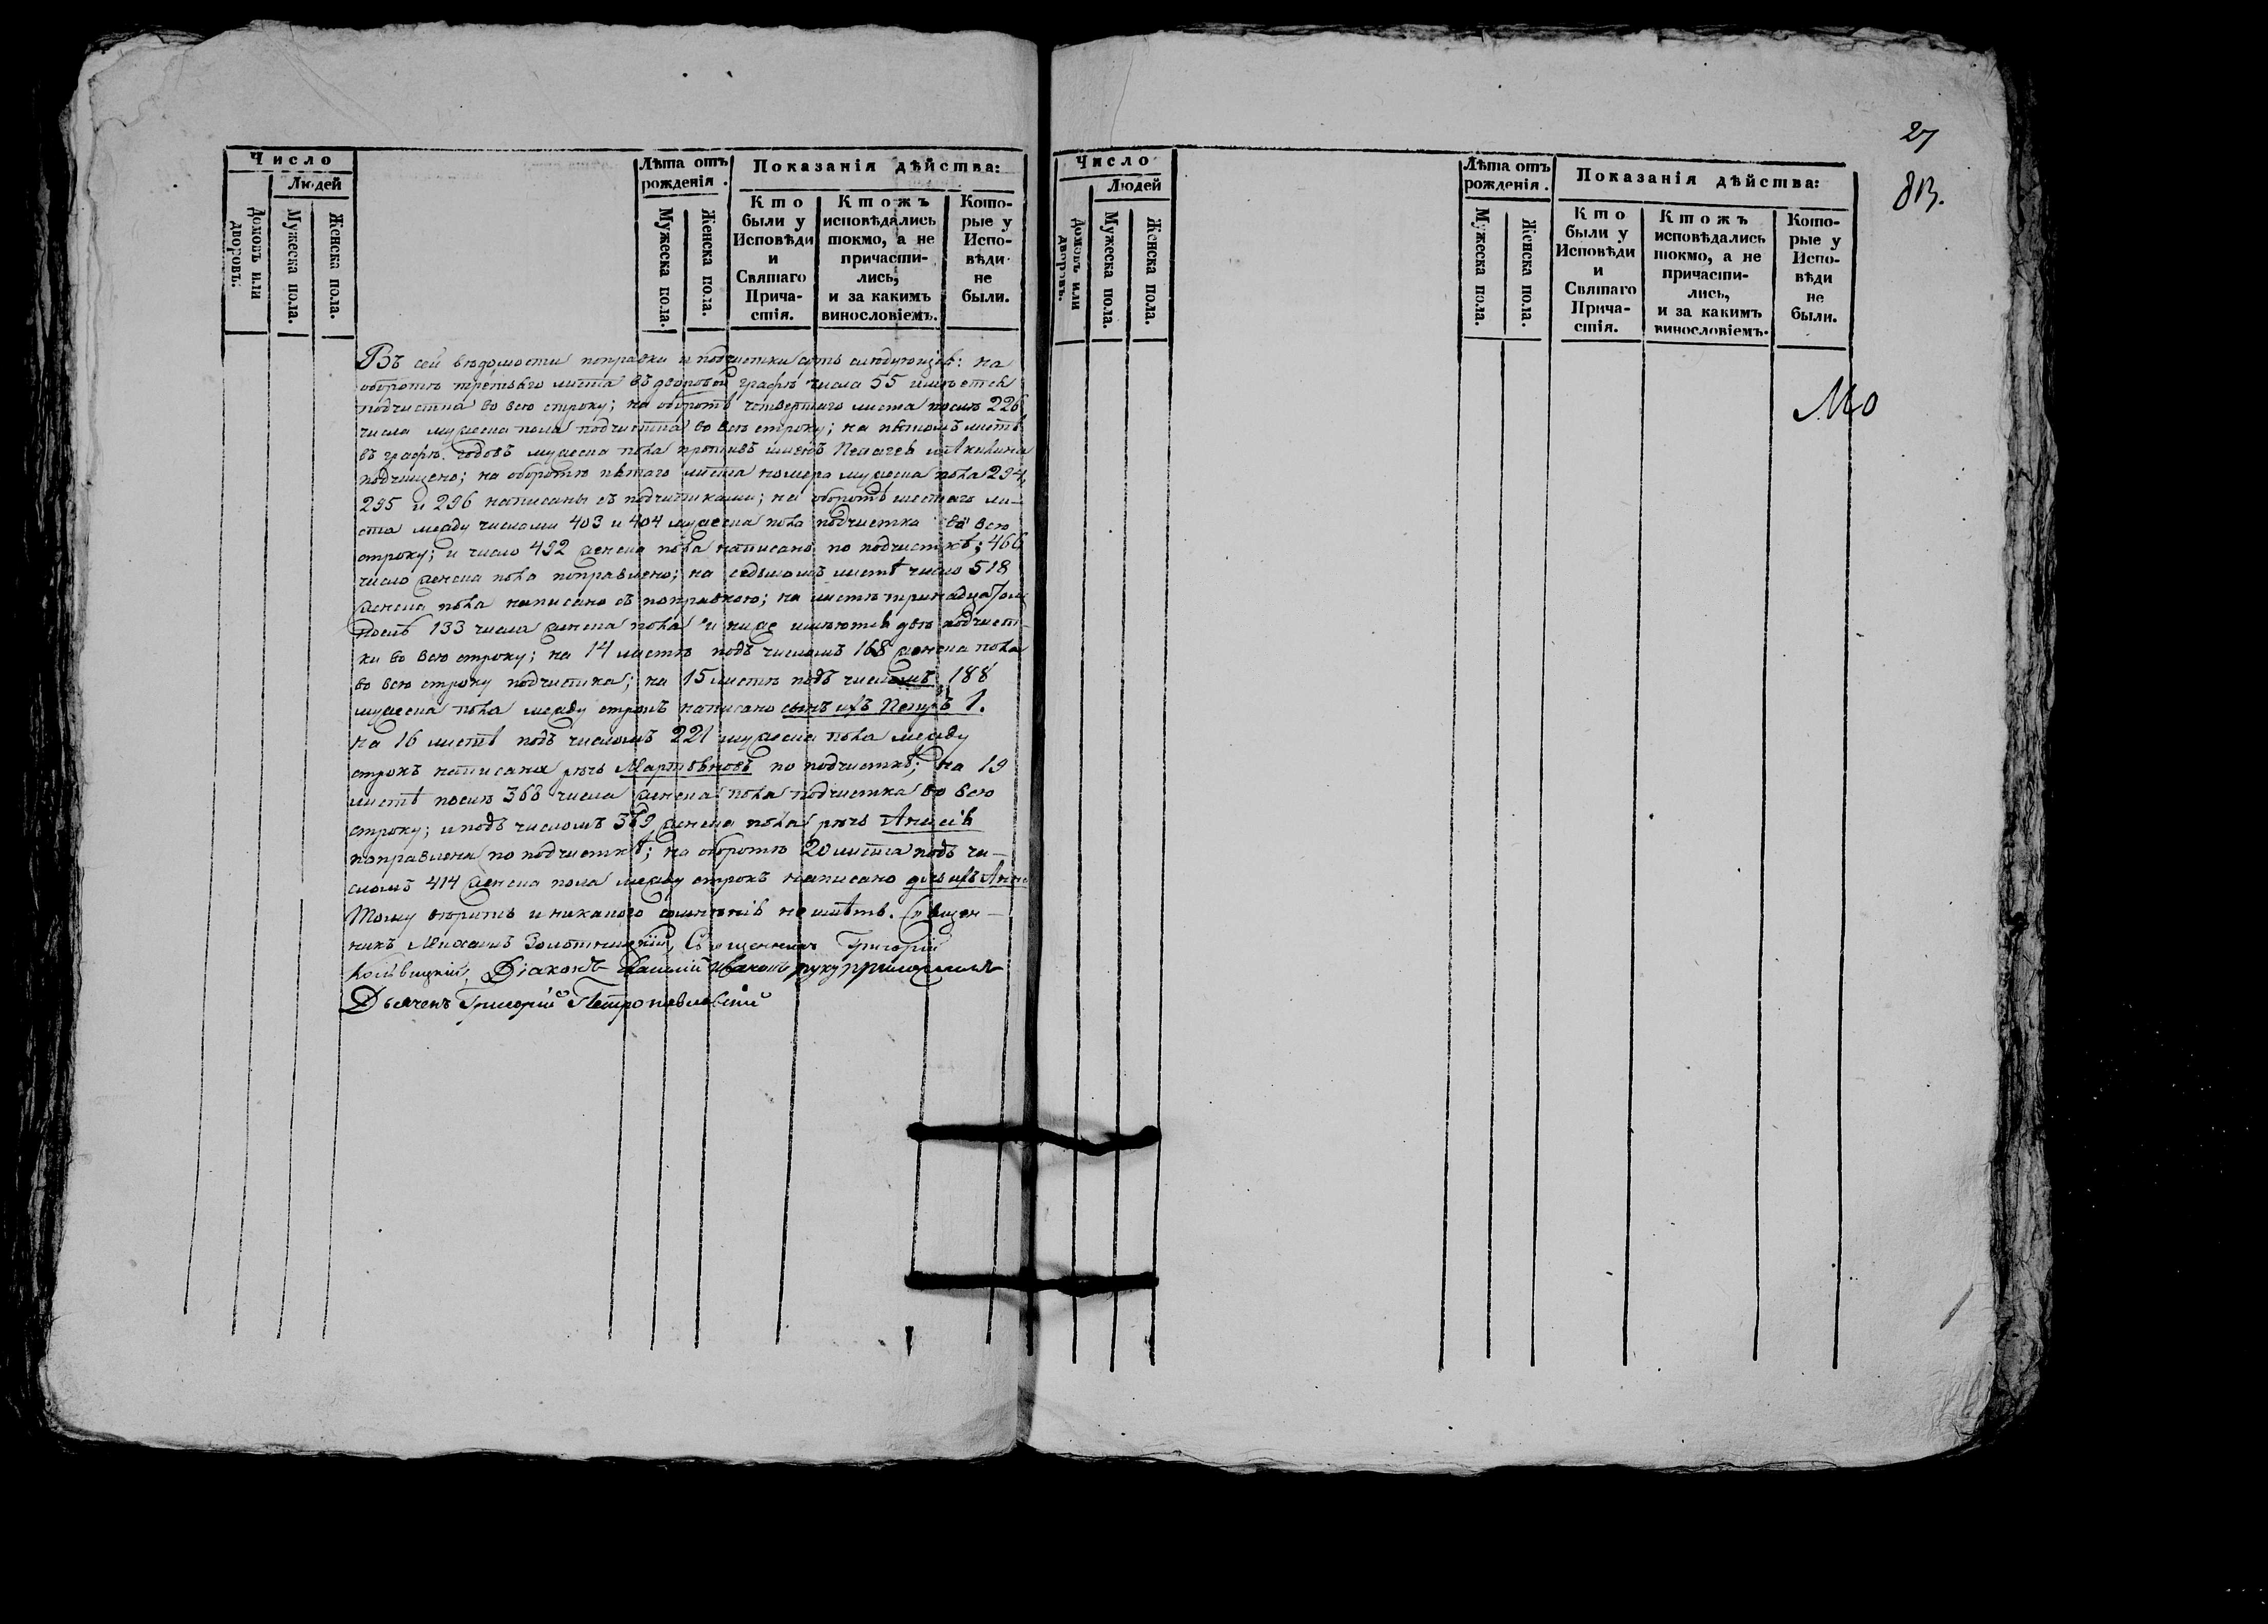 Число
Людей
Домовъ или дворовъ.
Мужеска пола.
Женска пола.
Лѣта отъ рожденія.
Мужеска пола.
Женска пола.
Показанія дѣйства:
Кто были у Исповѣди и Святаго Причастія.
Ктожъ исповѣдались токмо, а не причастились, и за какимъ винословіемъ.
Которые у Исповѣди не были.
Въ сей вѣдомости поправки и подчистки суть слѣдующія: на
оборотѣ третьяго листа въ дворовой графѣ числа 55 имѣется
подчистка во всю строку; на оборотѣ четвертаго листа послѣ 226
числа мужеска пола подчистка во всю строку; на пятомъ листѣ
въ графѣ годовъ мужеска пола противъ именъ Пелагея и Акилина
подчищено; на оборотѣ пятаго листа номера мужеска пола 294,
295 и 296 написаны съ подчистками; на оборотѣ шестаго ли-
ста между числами 403 и 404 мужеска пола подчистка во всю
строку; и число 492 женска пола написано по подчисткѣ; 466
число женска пола поправлено; на седьмомъ листѣ число 518
женска пола написано съ поправкою; на листѣ тринадцатом
послѣ 133 числа женска пола и ниже имѣются двѣ подчист-
ки во всю строку; на 14 листѣ подъ числомъ 168 женска пола
во всю строку подчистка; на 15 листѣ подъ числомъ 188
мужеска пола между строкъ написано сынъ ихъ Петръ 1.
на 16 листѣ подъ числомъ 221 мужеска пола между
строкъ написана рѣчь Мартѣновъ по подчисткѣ; на 19
листѣ послѣ 368 числа женска пола подчистка во всю
строку; и подъ числомъ 369 женска пола рѣчь Анисія
поправлена по подчисткѣ; на оборотѣ 20 листа подъ чи-
сломъ 414 женска пола между строкъ написано дочь ихъ Анна
Тому вѣрить и никакого сомнѣнія не имѣть. Священ-
никъ Михаилъ Золотницкій, Священникъ Григорій
Діаконъ Василій Ивановъ руку приложилъ
Дьячекъ Григорій Петропавловскій
27
813.
Число
Людей
Домовъ или дворовъ.
Мужеска пола.
Женска пола.
Лѣта отъ рожденія.
Мужеска пола.
Женска пола.
Показанія дѣйства:
Кто были у Исповѣди и Святаго Причастія.
Ктожъ исповѣдались токмо, а не причастились, и за какимъ винословіемъ.
Которые у Исповѣди не были.